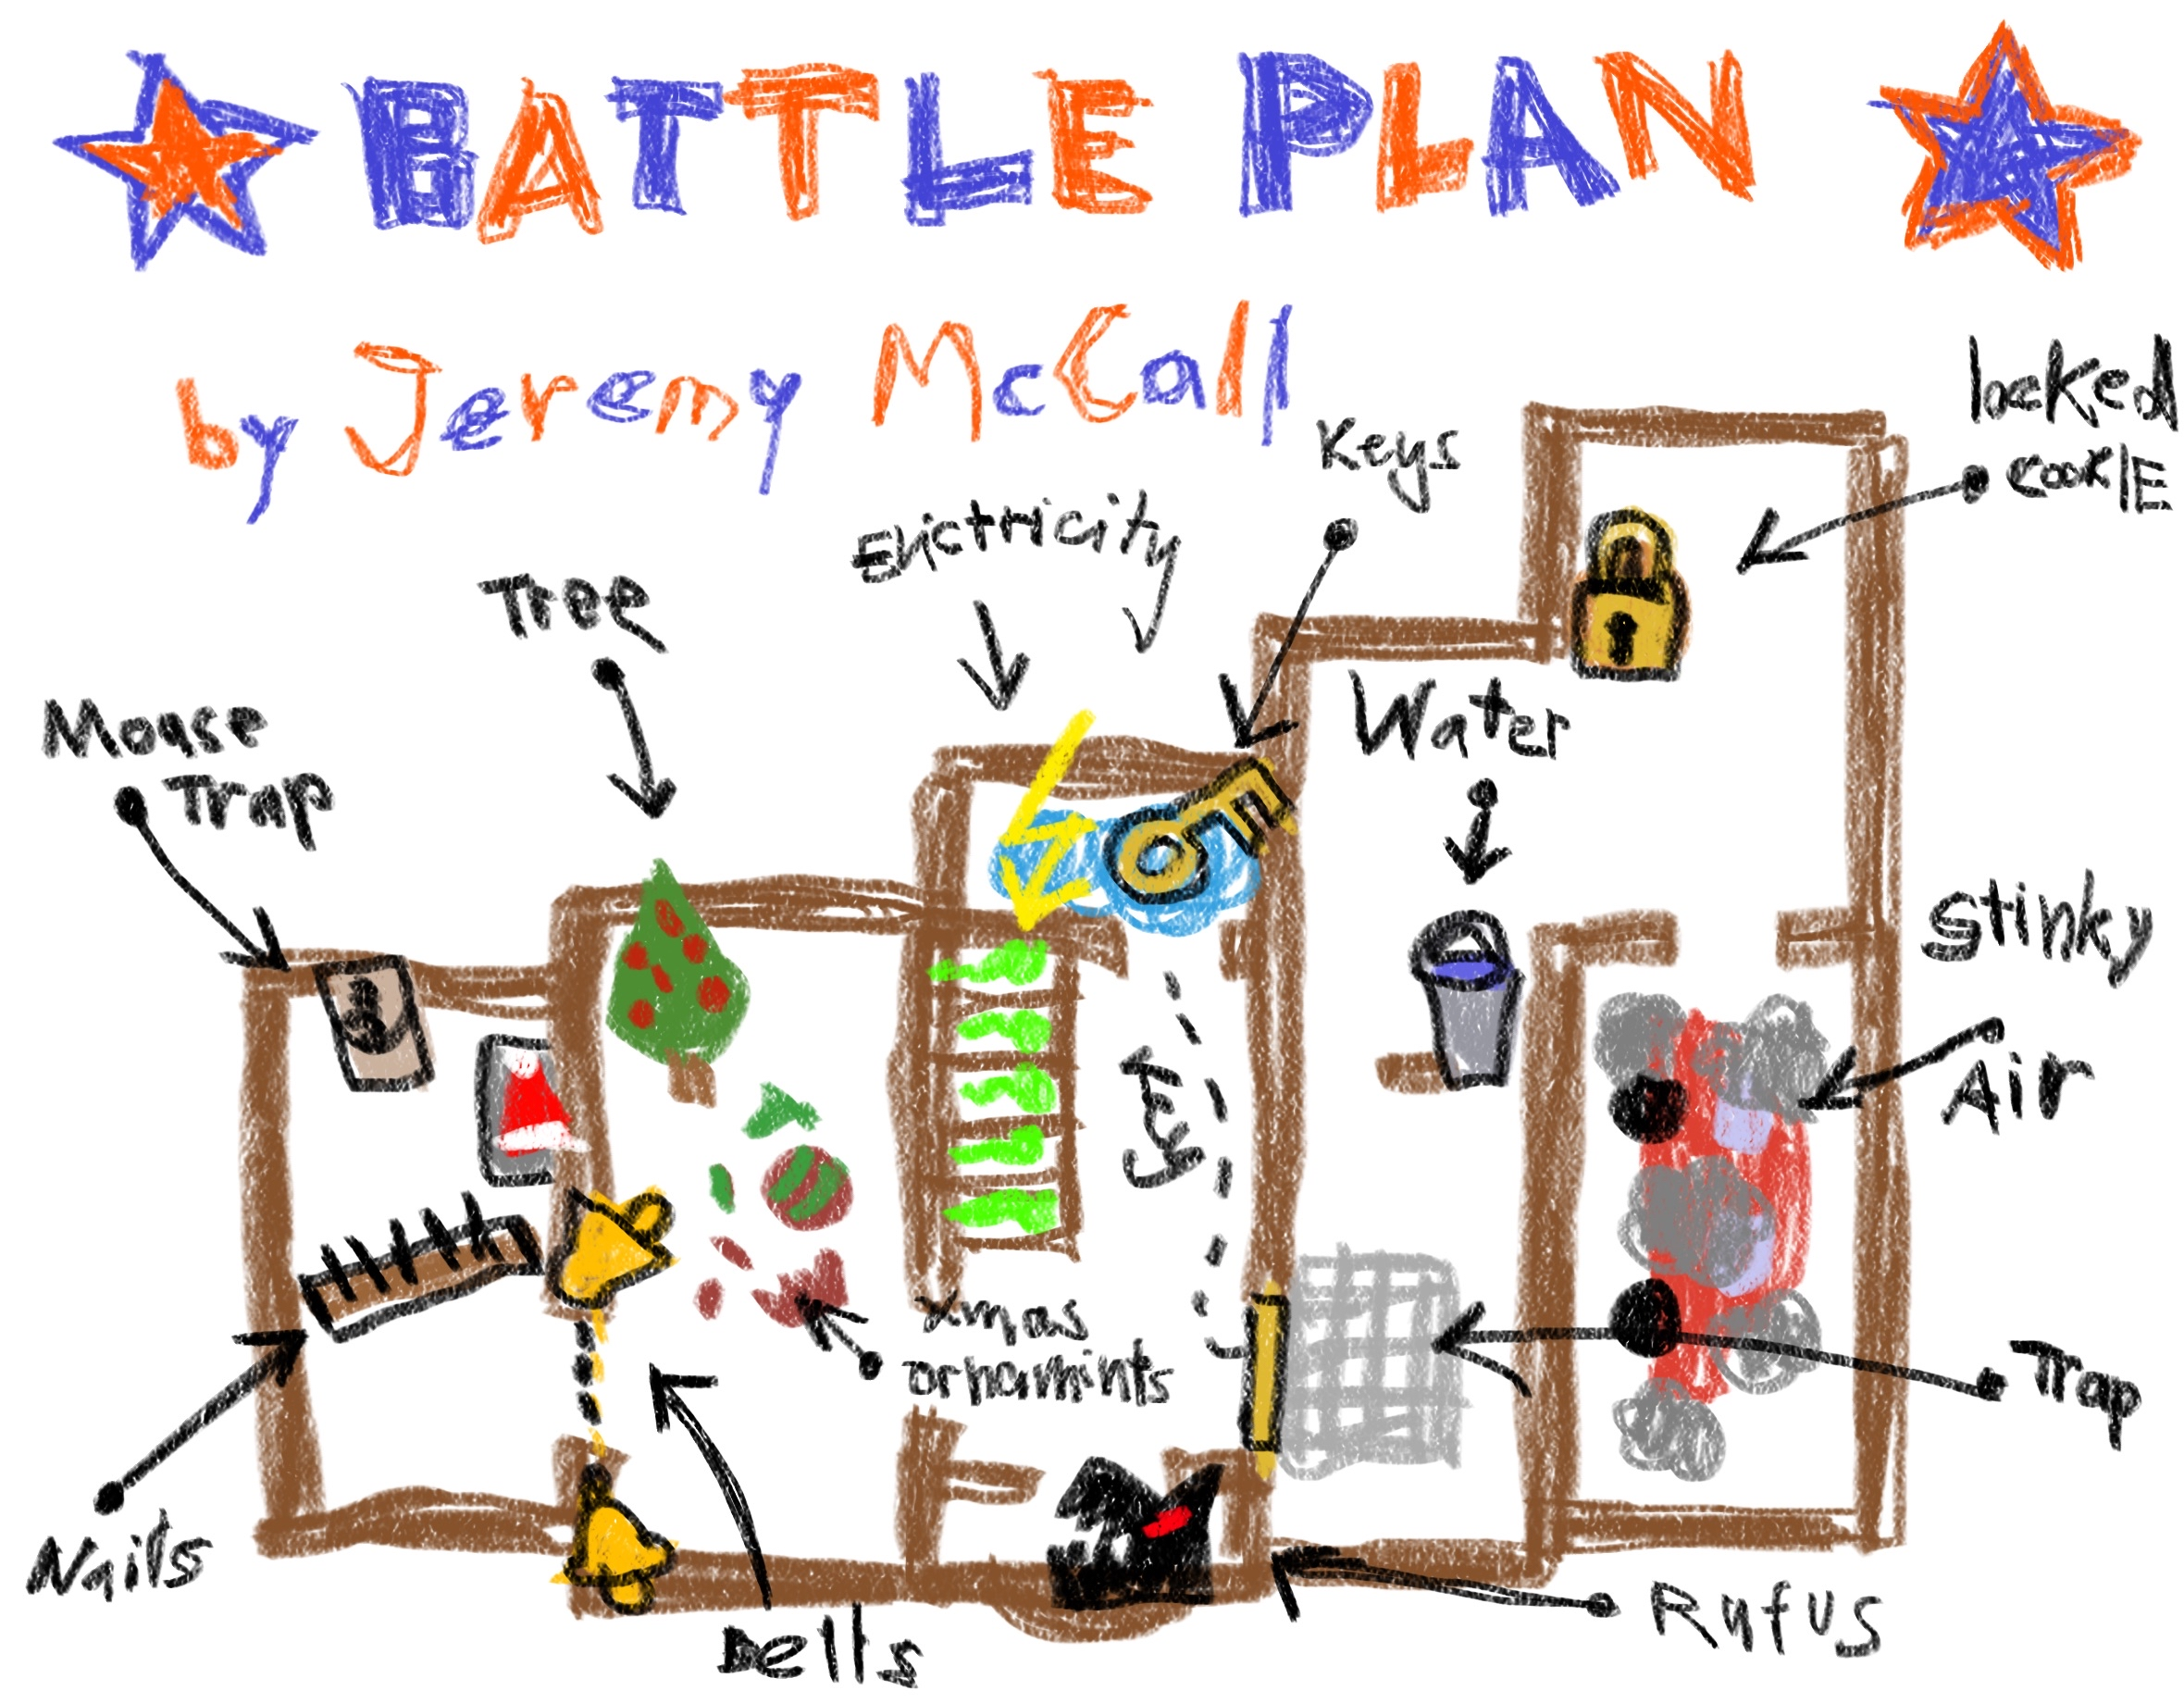 BATTLE PLAN
by Jeremy McCall
locked
cookIE
Keys
Elictricity
Tree
Water
Mouse
Trap
Stinky
Air
Key
xmas
ornamints
Trap
Nails
Bells
Rufus